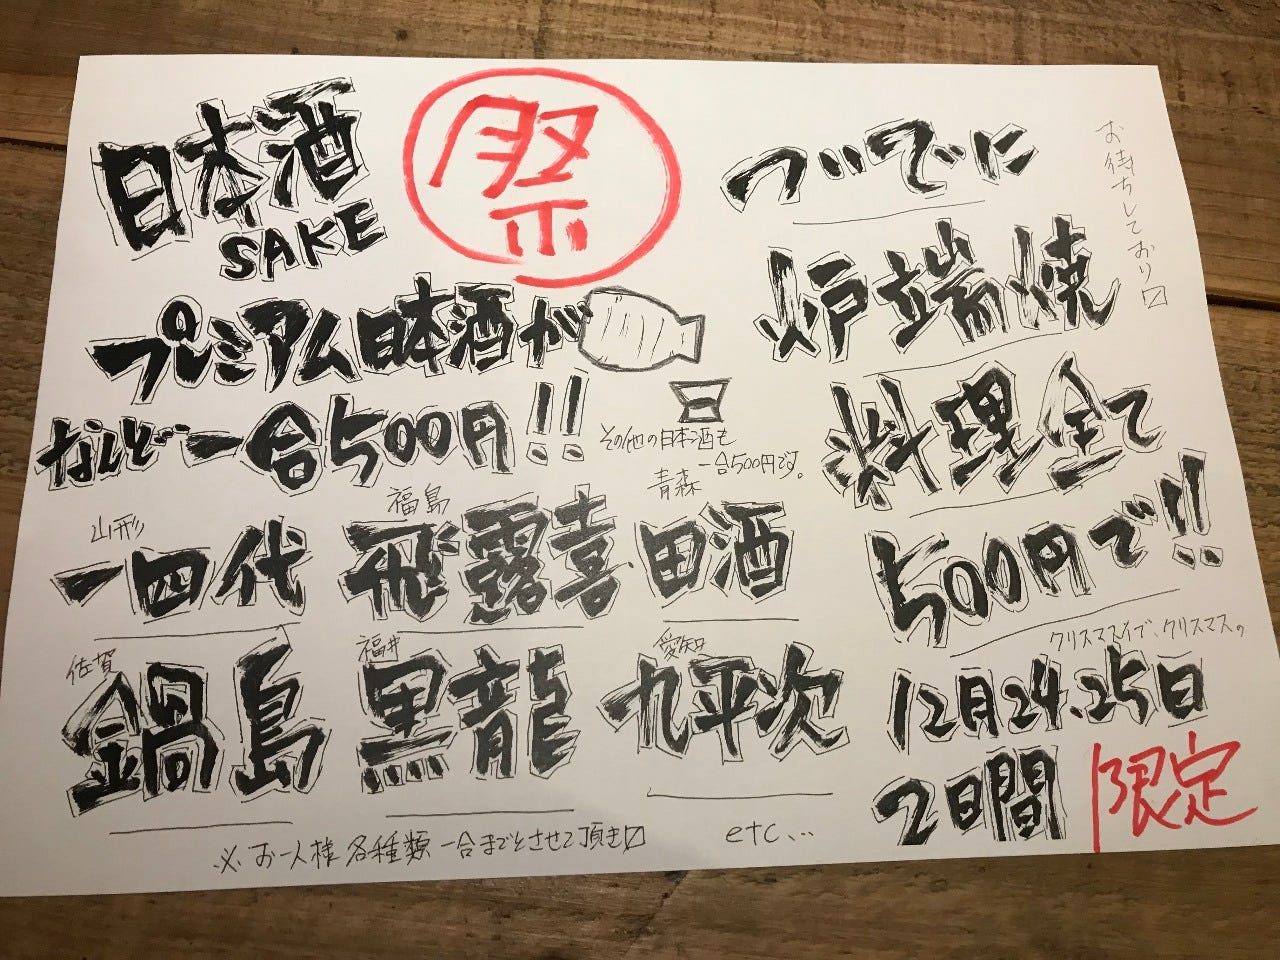 日本酒
SAKE
祭
プレミアム日本酒が
なんと一合500円!!
その他の日本酒も
一合500円です。
山形
十四代
福島
飛露喜
青森
田酒
佐賀
鍋島
福井
黒龍
愛知
九平次
※お一人様各種類一合までとさせて頂き〼
etc...
ついでに
炉端焼
料理全て
500円で!!
クリスマスイブ、クリスマスの
12月24、25日
2日間
限定
お待ちしており〼